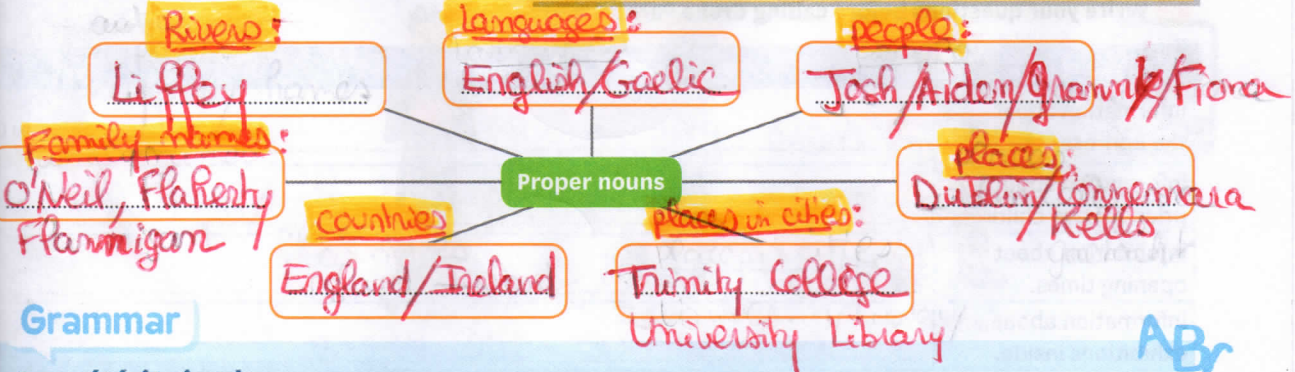 Rivers:
Liffey
languages:
English/Gaelic
people:
Josh/Aiden/Grannye/Fiona
Family names:
O'Neil, Flaherty/
Flannigan
Proper nouns
places:
Dublin/Connemara
/Kells
countries
England/Ireland
places in cities:
Trinity College
University Library
Grammar